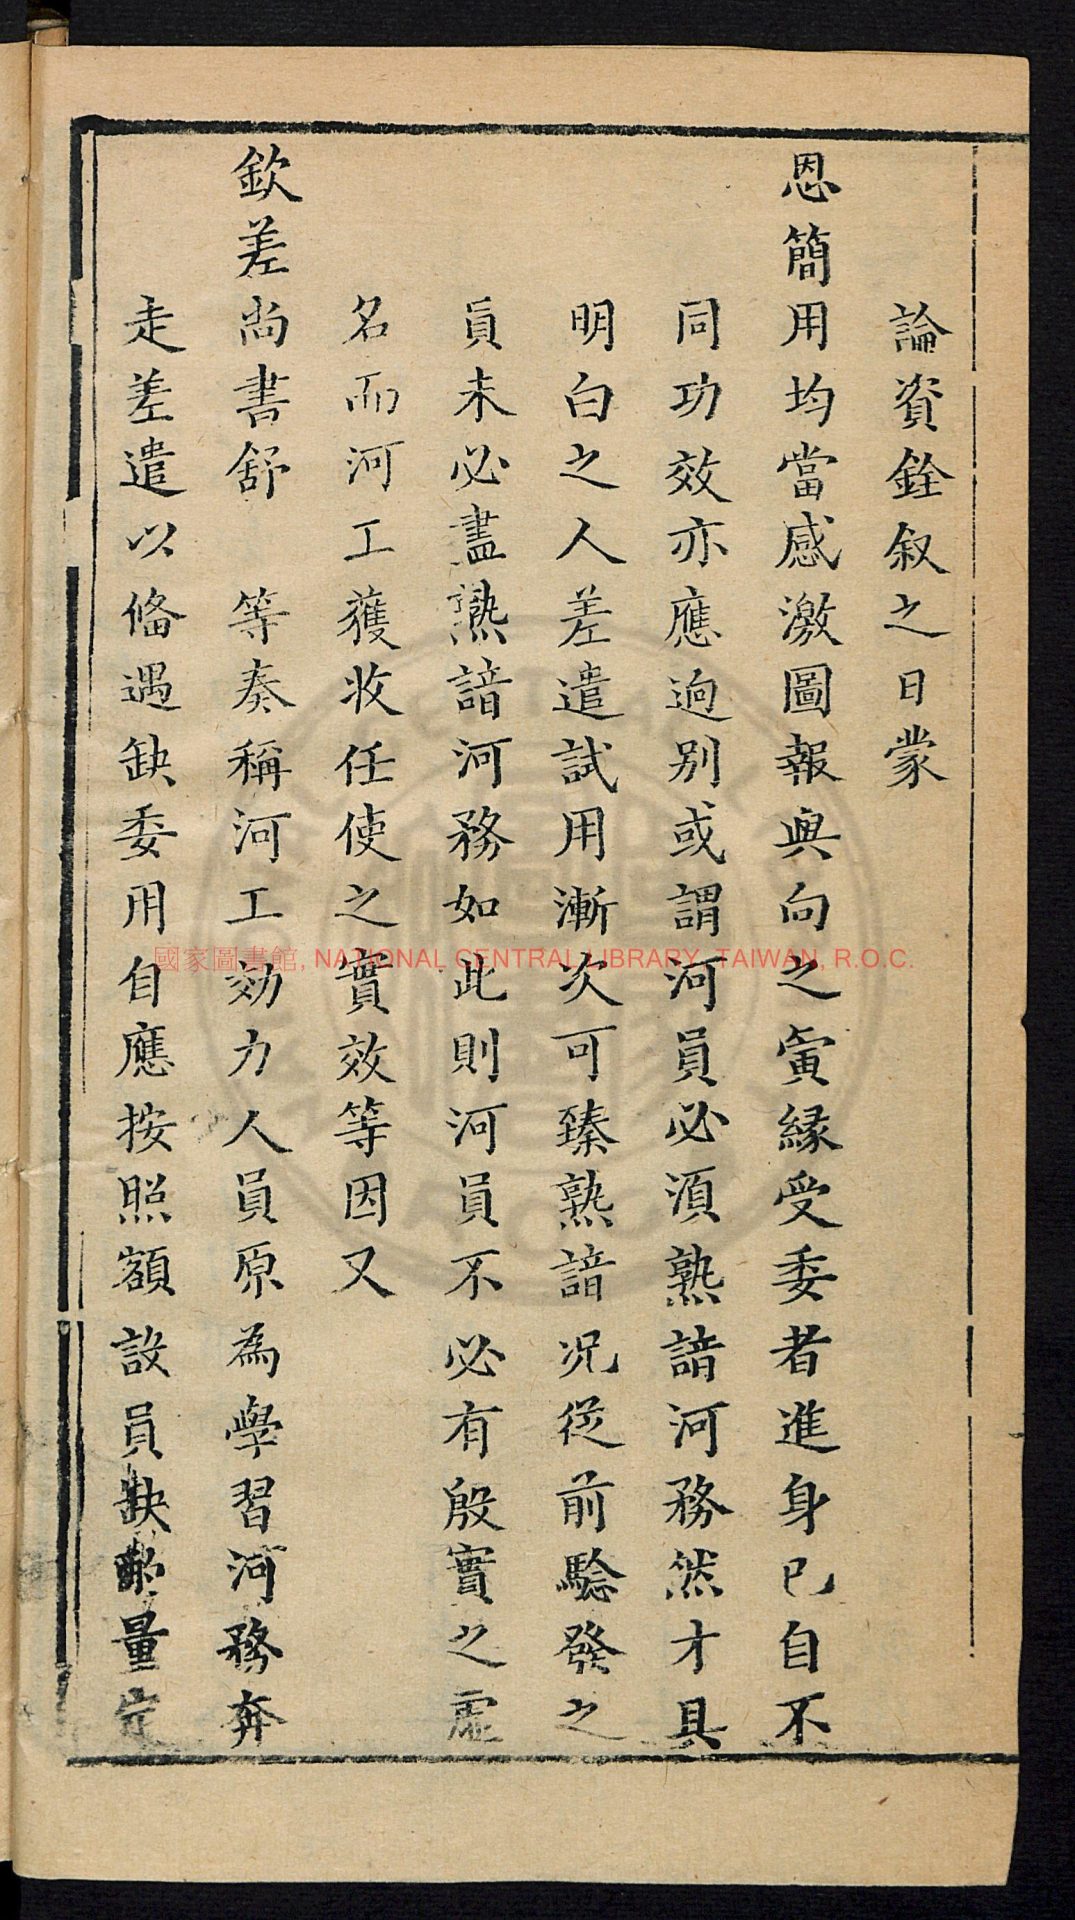 論資銓叙之日蒙
恩簡用均當感激圖報與向之夤緣受委者進身已自不
同功效亦應逈别或謂河員必須熟諳河務然才具
明白之人差遣試用漸次可臻熟諳况從前驗發之
員未必盡熟諳河務如此則河員不必有殷實之虛
名而河工獲收任使之實效等因又
欽差尚書舒　等奏稱河工効力人員原為學習河務奔
走差遣以俻遇缺委用自應按照額設員缺酌量定
國家圖書館, NATIONAL CENTRAL LIBRARY, TAIWAN, R.O.C.